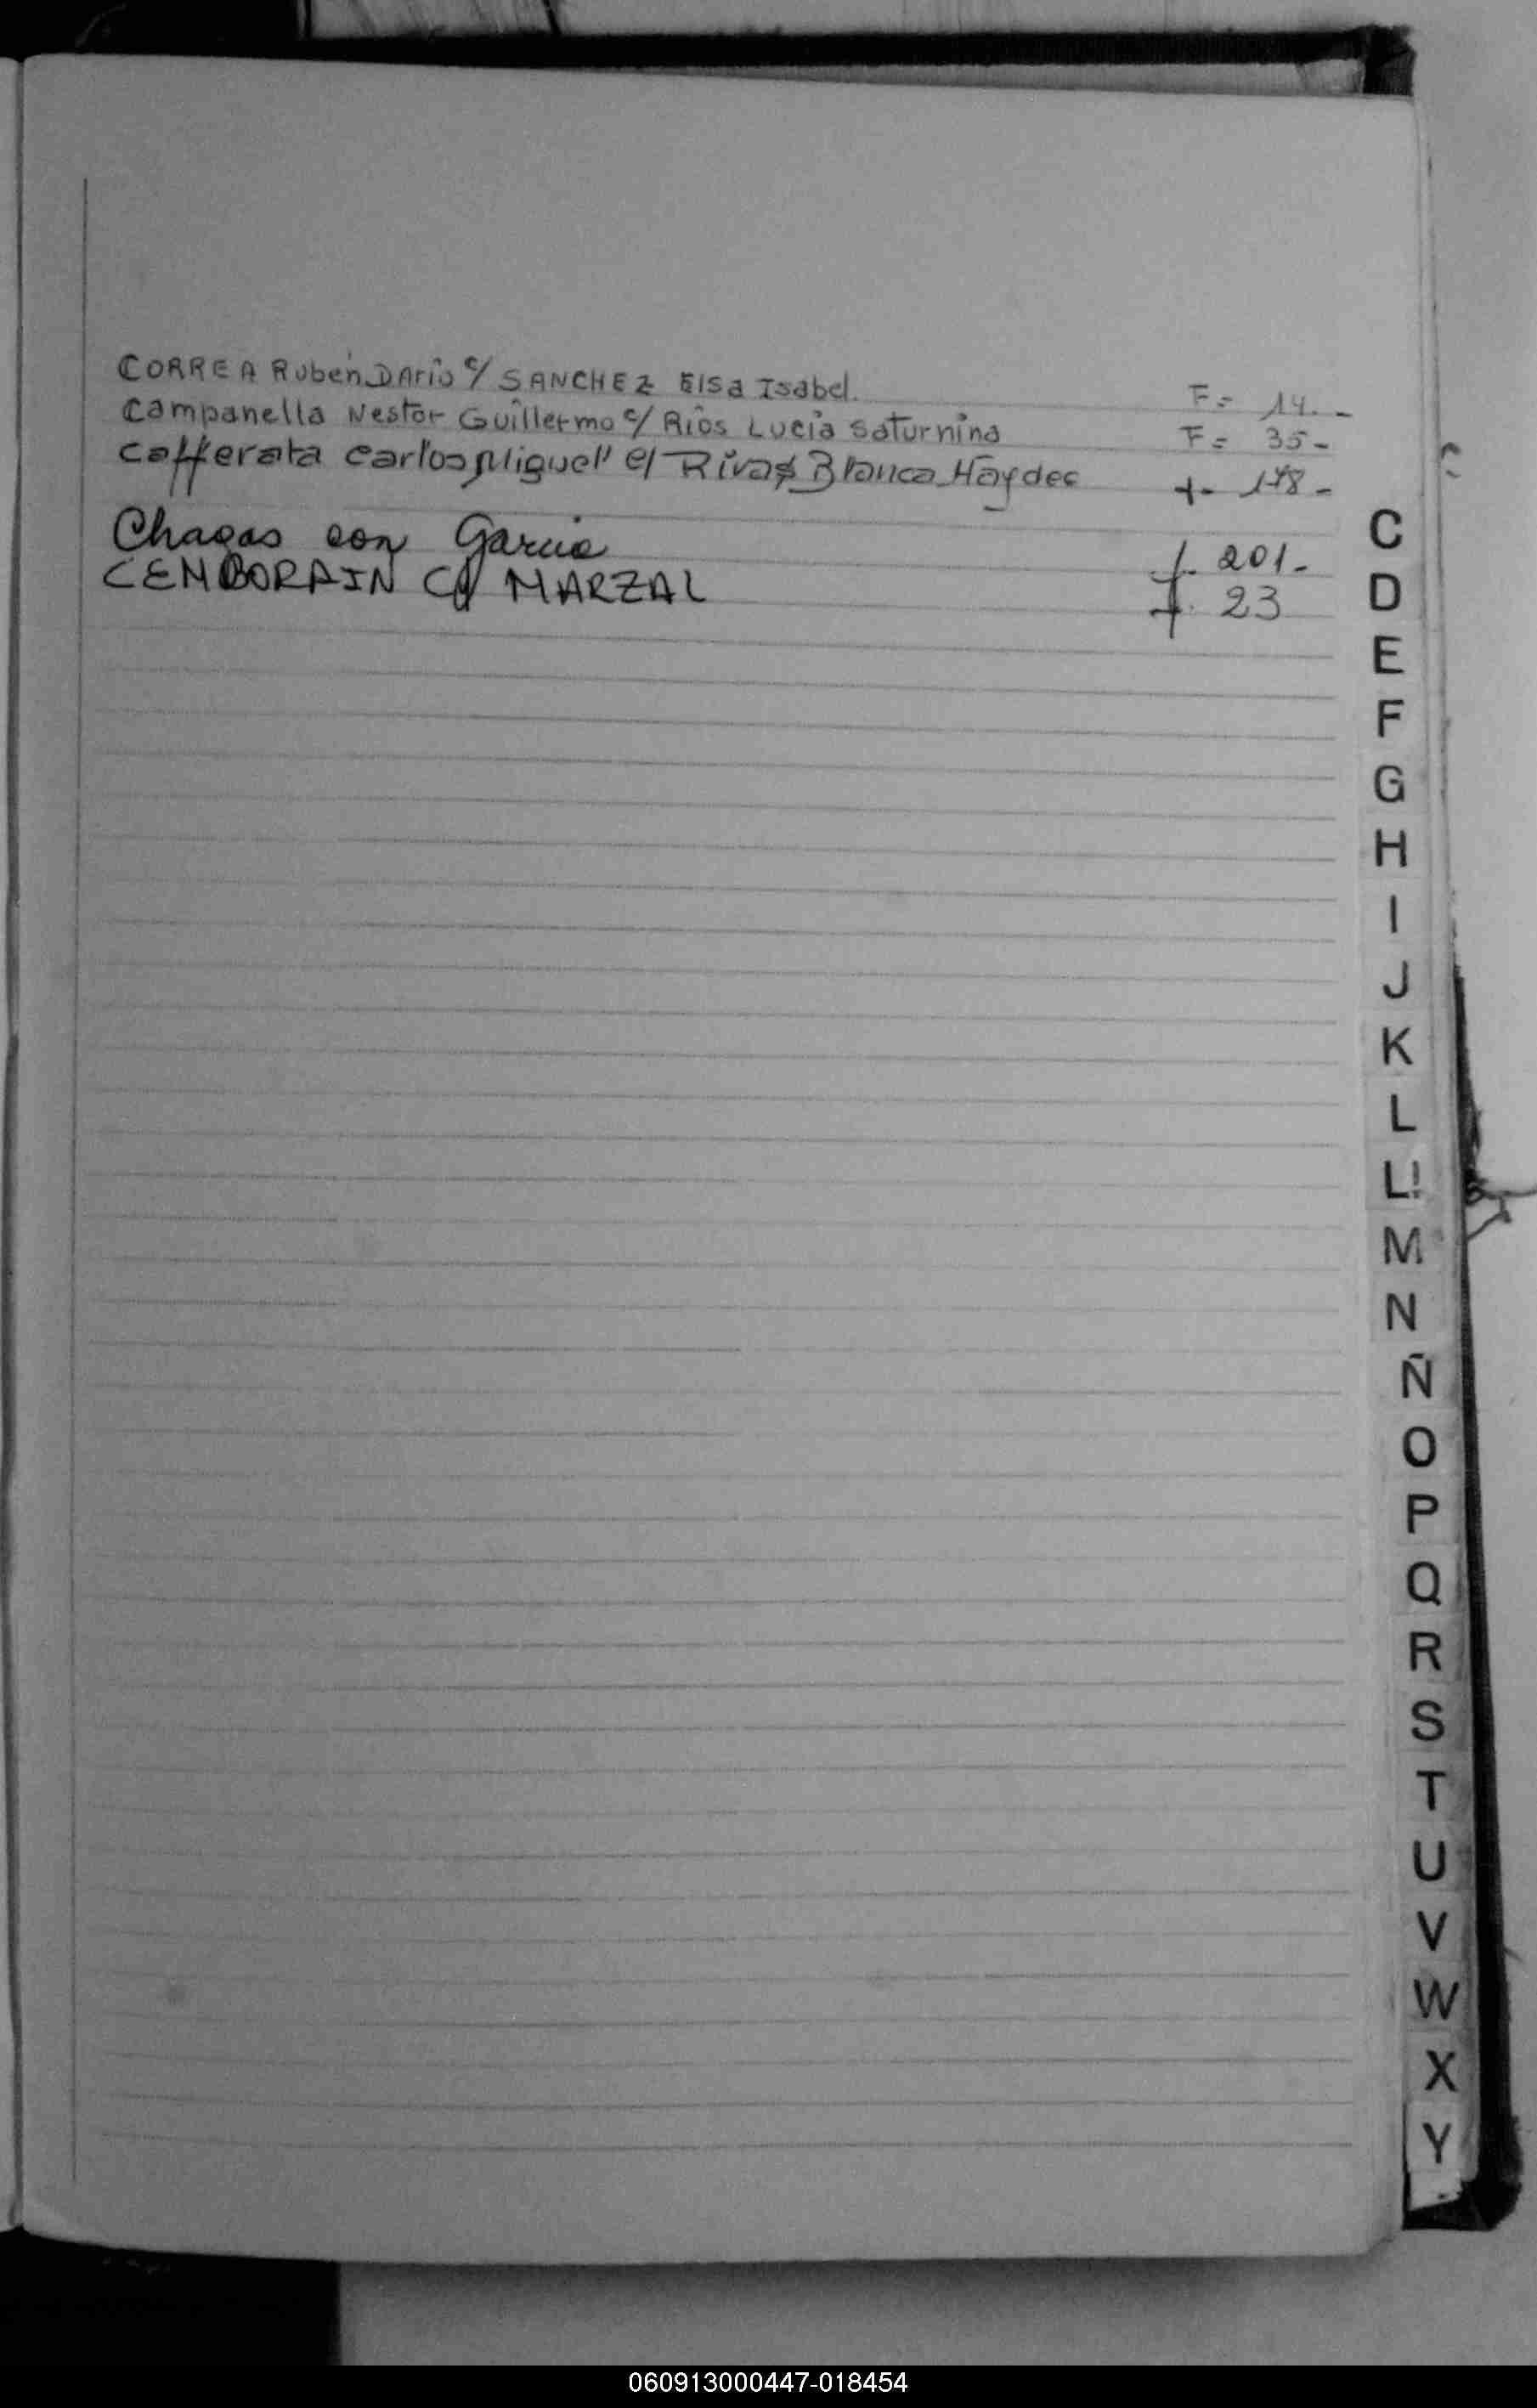 CORREA Ruben DArio c/ SANCHEZ Elsa Isabel. F= 14.-
Campanella Nestor Guillermo c/ Rios Lucia Saturnina F= 35-
Cafferata Carlos Miguel c/ Rivas Blanca Haydee f- 178-
Chagas con Garcia f. 201-
CEMBORAIN C/ MARZAL f. 23
C
D
E
F
G
H
I
J
K
L
Ll
M
N
Ñ
O
P
Q
R
S
T
U
V
W
X
Y
060913000447-018454